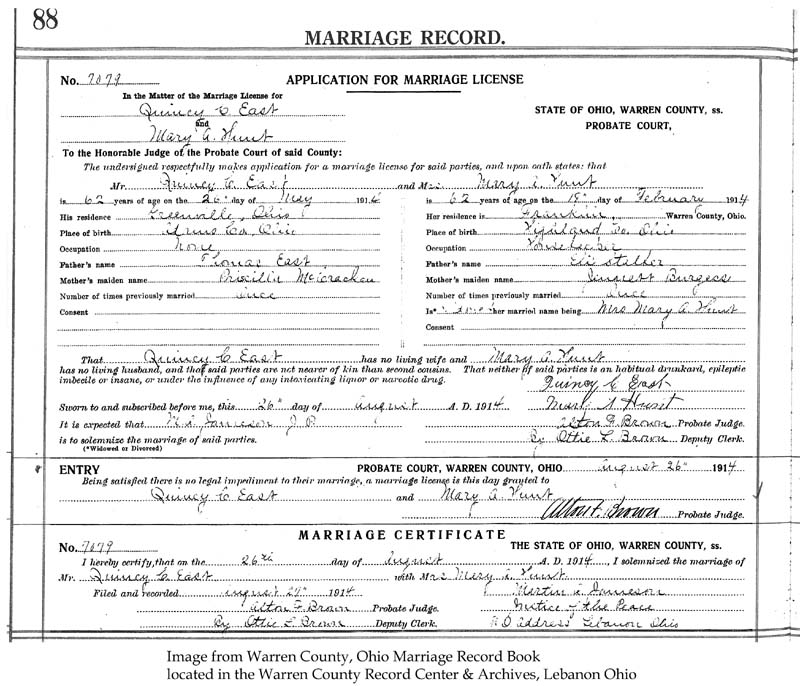 88
MARRIAGE RECORD.
No. 7079 APPLICATION FOR MARRIAGE LICENSE
In the Matter of the Marriage License for
Quincy C East
and
Mary A. Hunt
STATE OF OHIO, WARREN COUNTY, ss.
PROBATE COURT,
To the Honorable Judge of the Probate Court of said County:
The undersigned respectfully makes application for a marriage license for said parties, and upon oath states: that
Mr. Quincy C East and Mrs. Mary A. Hunt
is 62 years of age on the 26th day of May 1914
His residence Greenville, Ohio
Place of birth Co, Ohio
Occupation None
Father's name Thomas East
Mother's maiden name Priscilla McCracken
Number of times previously married once
Consent
is 62 years of age on the day of February 1914
Her residence is Franklin, Warren County, Ohio.
Place of birth Highland Co. Ohio
Occupation Housekeeper
Father's name Eli Stalker
Mother's maiden name Burgess
Number of times previously married once
Is* her married name being Mrs Mary A. Hunt
Consent
That Quincy C East has no living wife and Mary A. Hunt
has no living husband, and that said parties are not nearer of kin than second cousins. That neither of said parties is an habitual drunkard, epileptic
imbecile or insane, or under the influence of any intoxicating liquor or narcotic drug.
Quincy C East
Sworn to and subscribed before me, this 26th day of August A. D. 1914 Mary A Hunt
It is expected that Jameson J P Alton F. Brown Probate Judge.
is to solemnize the marriage of said parties. By Ottie L. Brown Deputy Clerk.
(*Widowed or Divorced)
ENTRY PROBATE COURT, WARREN COUNTY, OHIO August 26th 1914
Being satisfied there is no legal impediment to their marriage, a marriage license is this day granted to
Quincy C East and Mary A Hunt
Alton F. Brown Probate Judge.
MARRIAGE CERTIFICATE
No. 7079 THE STATE OF OHIO, WARREN COUNTY, ss.
I hereby certify, that on the 26th day of August A. D. 1914 I solemnized the marriage of
Mr. Quincy C. East with Mrs Mary A. Hunt
Filed and recorded August 27th 1914 Martin A. Jameson
Alton F Brown Probate Judge. Justice of the Peace
By Ottie L Brown Deputy Clerk. P O address Lebanon Ohio
Image from Warren County, Ohio Marriage Record Book
located in the Warren County Record Center & Archives, Lebanon Ohio